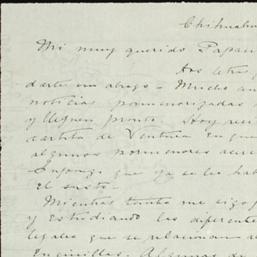 Chihuahua
Mi muy querido Papá
Dos letras
darte un abrazo - Mucho
noticias pormenorizadas
y lleguen pronto. Hoy reci
cartita de Ventura en que
algunos pormenores acer
que ya se les ha
el susto.
Mientras tanto me sigo
y estudiando las diferente
legales que se relacionan
Encinillas. Algunas de